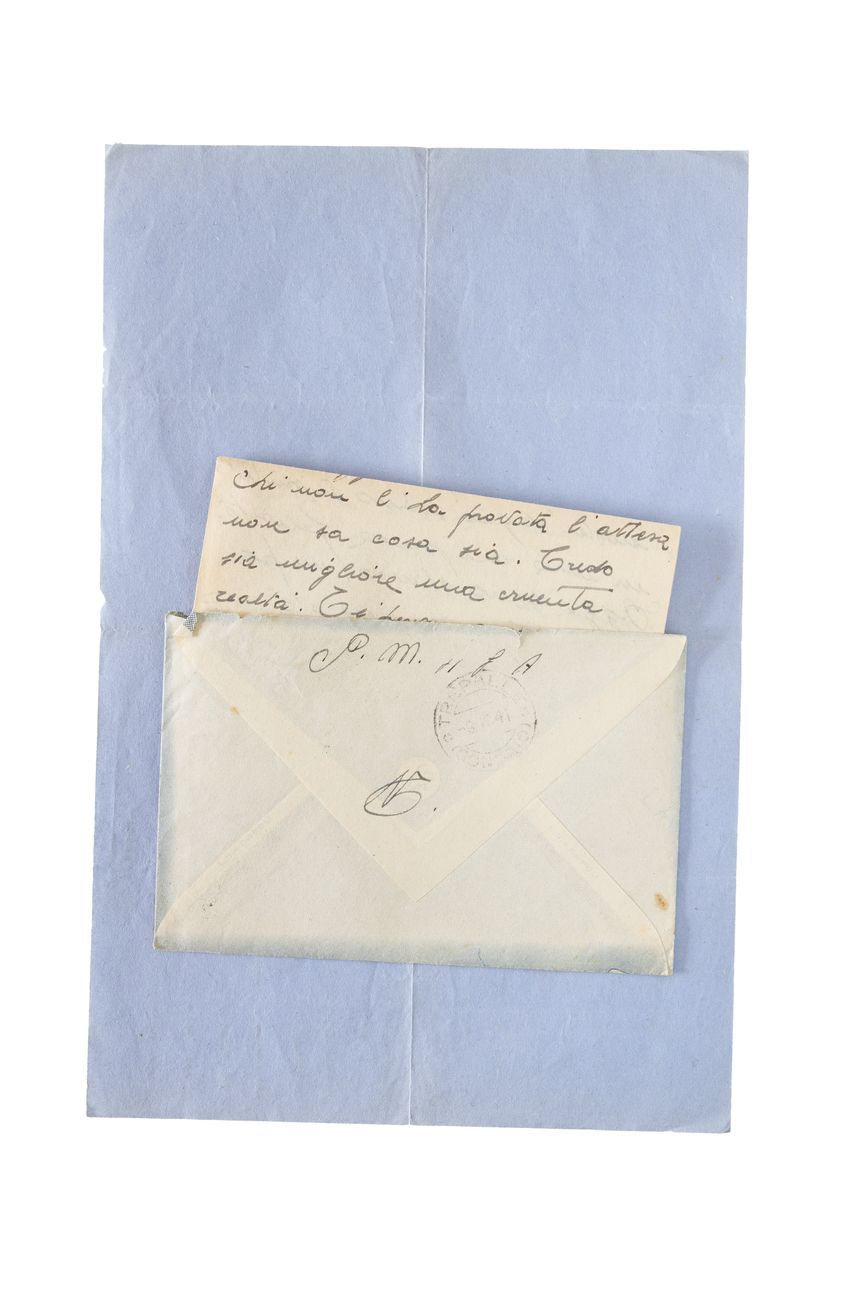 Chi non l'ha provata l'attesa
non sa cosa sia. Credo
sia migliore una cruenta
realtà. Ti
P. M. 11 E A